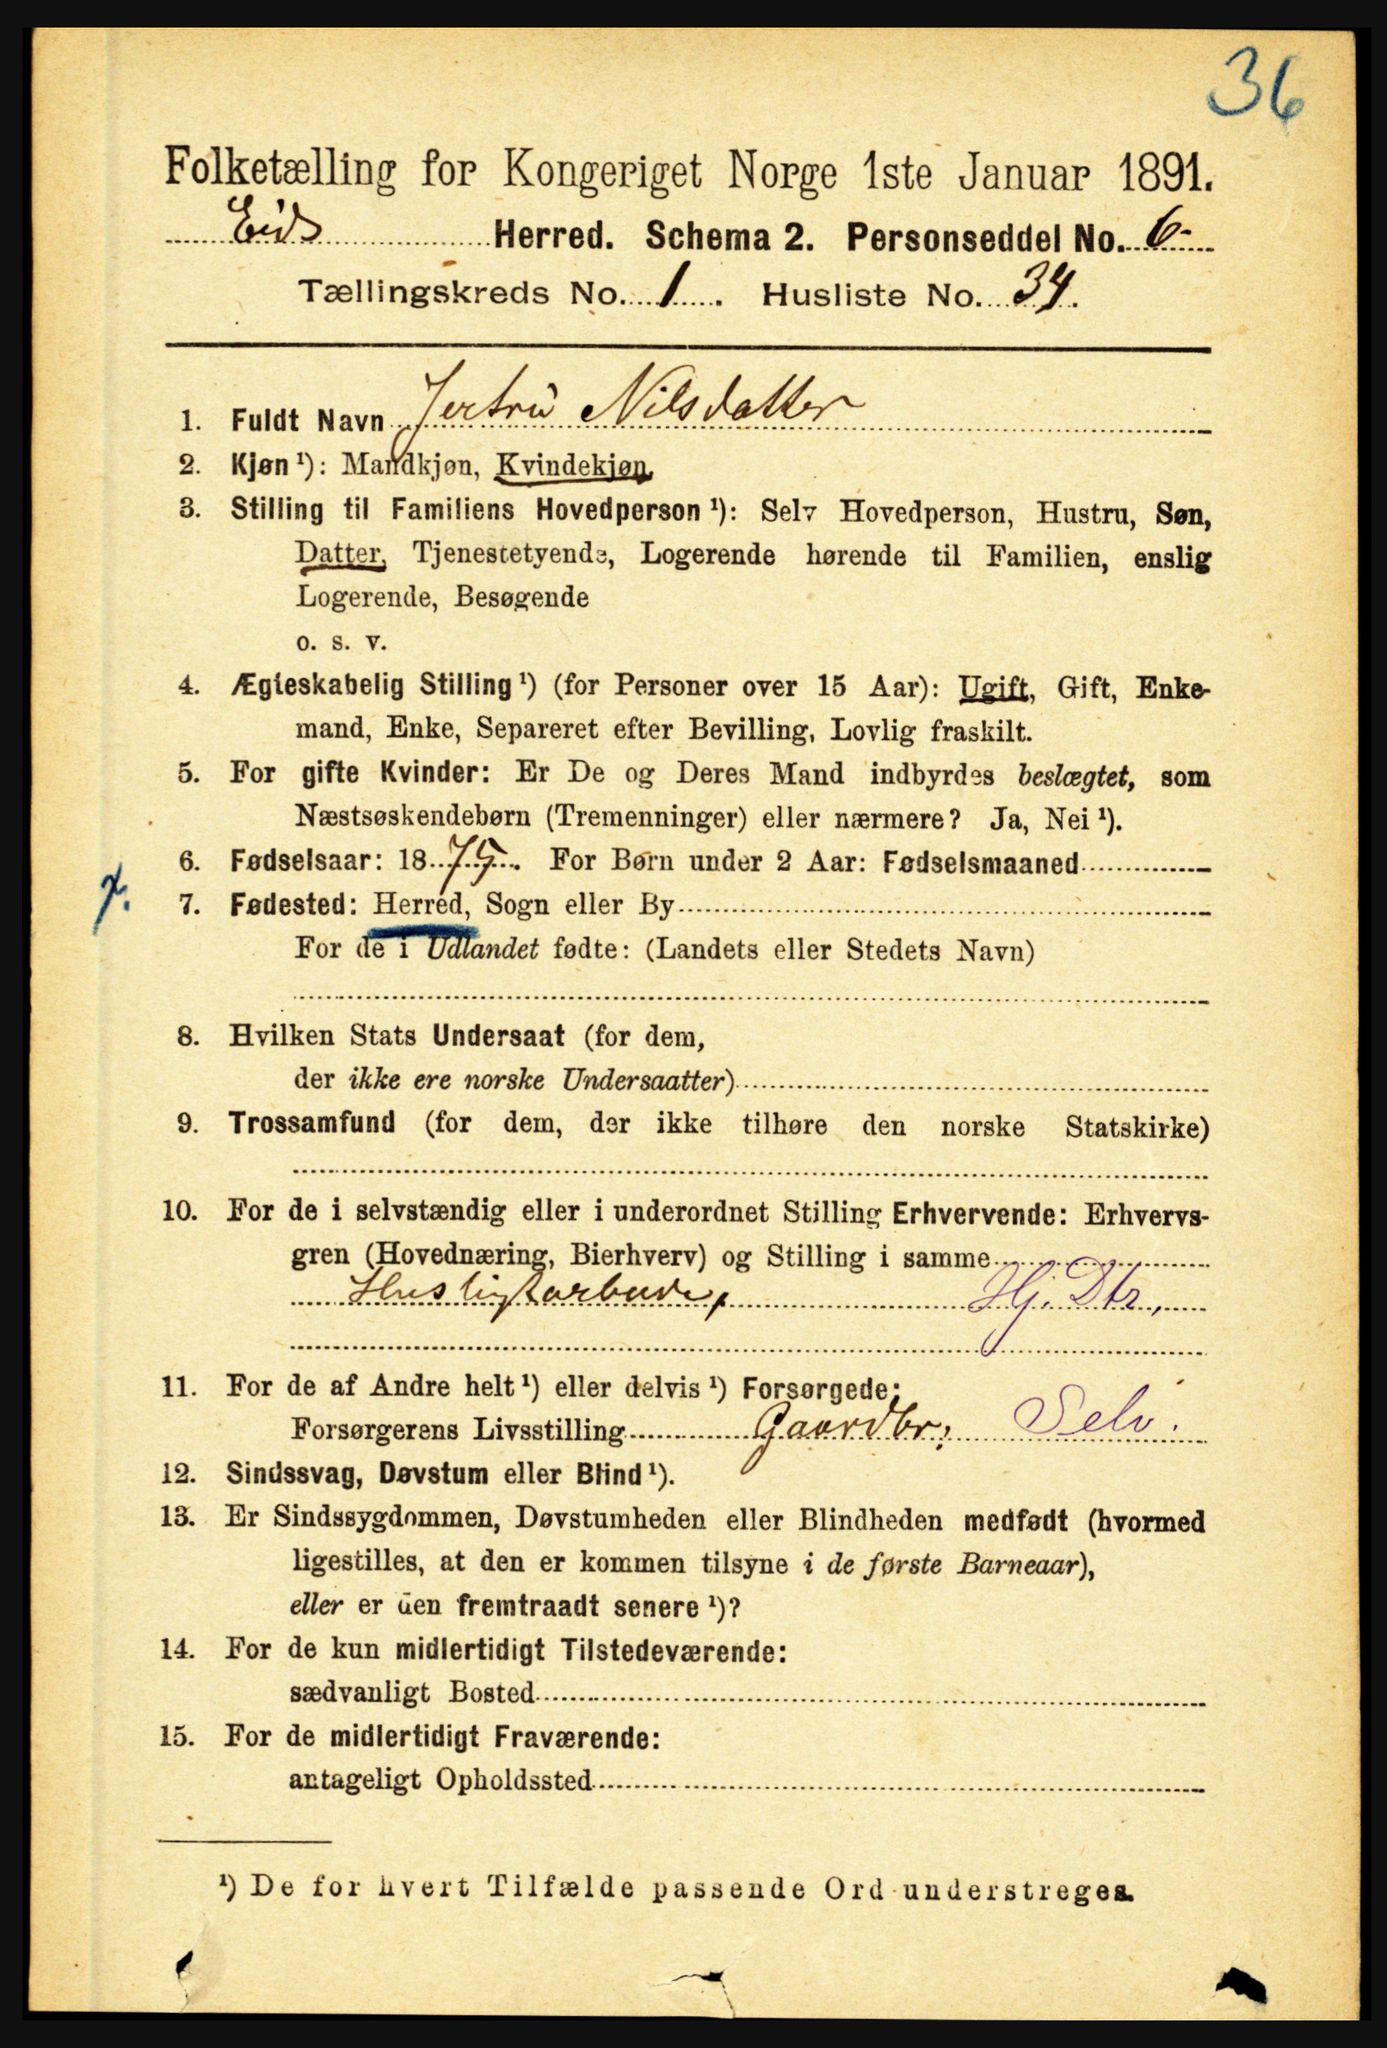 36
Folketælling for Kongeriget Norge 1ste Januar 1891.
Eids Herred. Schema 2. Personseddel No. 6-
Tællingskreds No. 1. Husliste No. 34.
1. Fuldt Navn Jertrü Nilsdatter
2. Kjøn ¹): Mandkjøn, Kvindekjøn
3. Stilling til Familiens Hovedperson ¹): Selv Hovedperson, Hustru, Søn,
Datter, Tjenestetyende, Logerende hørende til Familien, enslig
Logerende, Besøgende
o. s. v.
4. Ægteskabelig Stilling ¹) (for Personer over 15 Aar): Ugift, Gift, Enke-
mand, Enke, Separeret efter Bevilling, Lovlig fraskilt.
5. For gifte Kvinder: Er De og Deres Mand indbyrdes beslægtet, som
Næstsøskendebørn (Tremenninger) eller nærmere? Ja, Nei ¹).
6. Fødselsaar: 1875. For Børn under 2 Aar: Fødselsmaaned
7. Fødested: Herred, Sogn eller By
For de i Udlandet fødte: (Landets eller Stedets Navn)
8. Hvilken Stats Undersaat (for dem,
der ikke ere norske Undersaatter)
9. Trossamfund (for dem, der ikke tilhøre den norske Statskirke)
10. For de i selvstændig eller i underordnet Stilling Erhvervende: Erhvervs-
gren (Hovednæring, Bierhverv) og Stilling i samme
Hj. Dtr,
11. For de af Andre helt ¹) eller delvis ¹) Forsørgede:
Forsørgerens Livsstilling Gaardbr, Selv.
12. Sindssvag, Døvstum eller Blind ¹).
13. Er Sindssygdommen, Døvstumheden eller Blindheden medfødt (hvormed
ligestilles, at den er kommen tilsyne i de første Barneaar),
eller er den fremtraadt senere ¹)?
14. For de kun midlertidigt Tilstedeværende:
sædvanligt Bosted
15. For de midlertidigt Fraværende:
antageligt Opholdssted
¹) De for hvert Tilfælde passende Ord understreges.